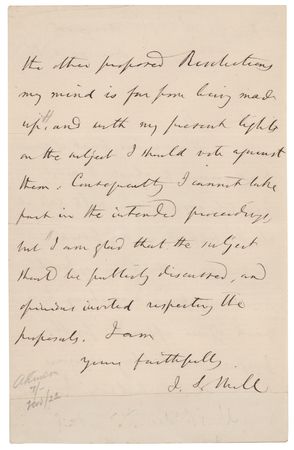 the other proposed Resolutions
my mind is far from being made
up, and with my present lights
on the subject I should vote against
them. Consequently I cannot take
part in the intended proceedings,
but I am glad that the subject
should be publicly discussed, and
opinions invited respecting the
proposals. I am
yours faithfully
J. S. Mill